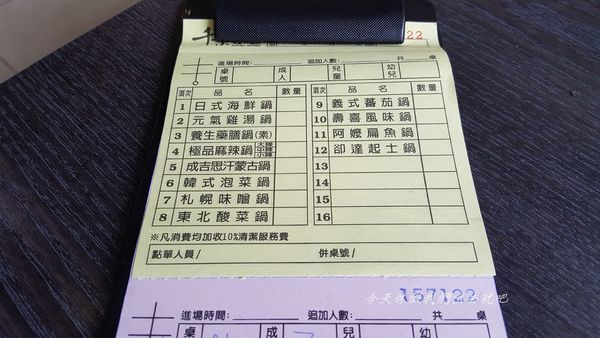 千
22
進場時間: 追加人數: 共 桌
桌號 成人 兒童 幼兒
項次 品名 數量 項次 品名 數量
1 日式海鮮鍋 9 義式蕃茄鍋
2 元氣雞湯鍋 10 壽喜風味鍋
3 養生藥膳鍋(素) 11 阿嬤扁魚鍋
4 極品麻辣鍋 大辣 中辣 小辣 12 卻達起士鍋
5 成吉思汗蒙古鍋 13
6 韓式泡菜鍋 14
7 札幌味噌鍋 15
8 東北酸菜鍋 16
※凡消費均加收10%清潔服務費
點單人員/ 併桌號/
157122
進場時間: 追加人數: 共 桌
桌 成 兒 幼